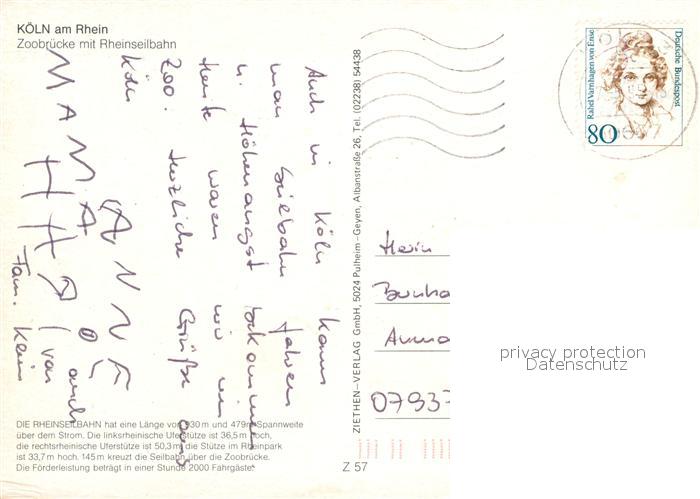 KÖLN am Rhein
Zoobrücke mit Rheinseilbahn
Auch in Köln kann
man Seilbahn fahren
u. Höhenangst bekommen.
Heute waren wir im
Zoo. Herzliche Grüße aus
Köln
MAMA
ANNE
auch
von
Fam. Klein
DIE RHEINSEILBAHN hat eine Länge von 930 m und 479 m Spannweite
über dem Strom. Die linksrheinische Uferstütze ist 36,5 m hoch,
die rechtsrheinische Uferstütze ist 50,3 m die Stütze im Rheinpark
ist 33,7 m hoch. 145 m kreuzt die Seilbahn über die Zoobrücke.
Die Förderleistung beträgt in einer Stunde 2000 Fahrgäste.
ZIETHEN-VERLAG GmbH, 5024 Pulheim-Geyen, Albanstraße 26, Tel. (02238) 54438
Z 57
Rahel Varnhagen von Ense
Deutsche Bundespost
80
Herrn
0793
privacy protection
Datenschutz